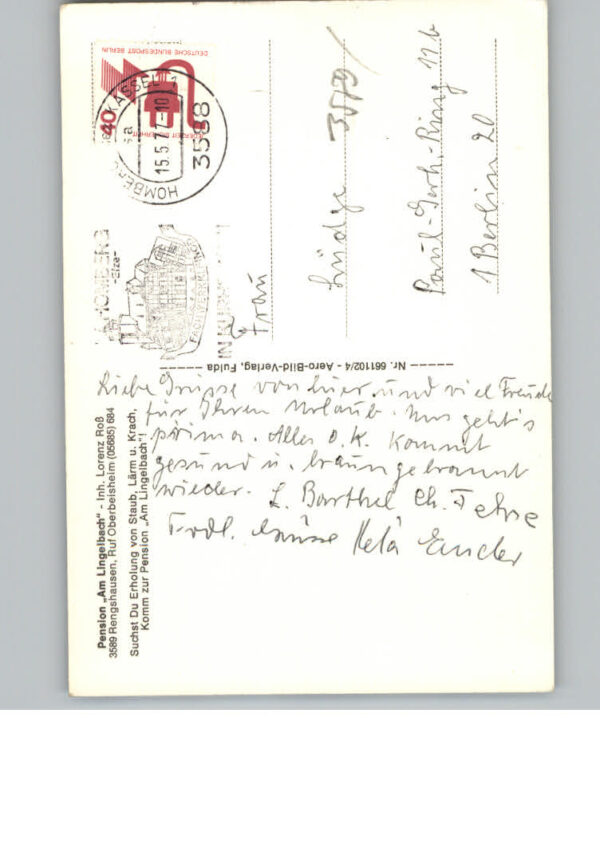 Pension „Am Lingelbach“ - Inh. Lorenz Roß
3589 Rengshausen, Ruf Oberbeisheim (05685) 684
Suchst Du Erholung von Staub, Lärm u. Krach,
Komm zur Pension „Am Lingelbach“!
Liebe Grüsse von hier und viel Freude
für Ihren Urlaub. Uns geht's
prima. Alles o.K. Kommt
gesund u. braungebrannt
wieder. L. Barthel Ch. Fehse
Frdl. Grüsse
Nr. 661102/4 - Aero-Bild-Verlag, Fulda
DEUTSCHE BUNDESPOST BERLIN
JEDERZEIT SICHERHEIT
40
KASSEL 1
15.5.77-10
3588
HOMBERG
HOMBERG
-Efze-
IN KURHESSEN
Frau
Lüdge 3579/
Paul-Gerh.-Ring 12b
1 Berlin 20